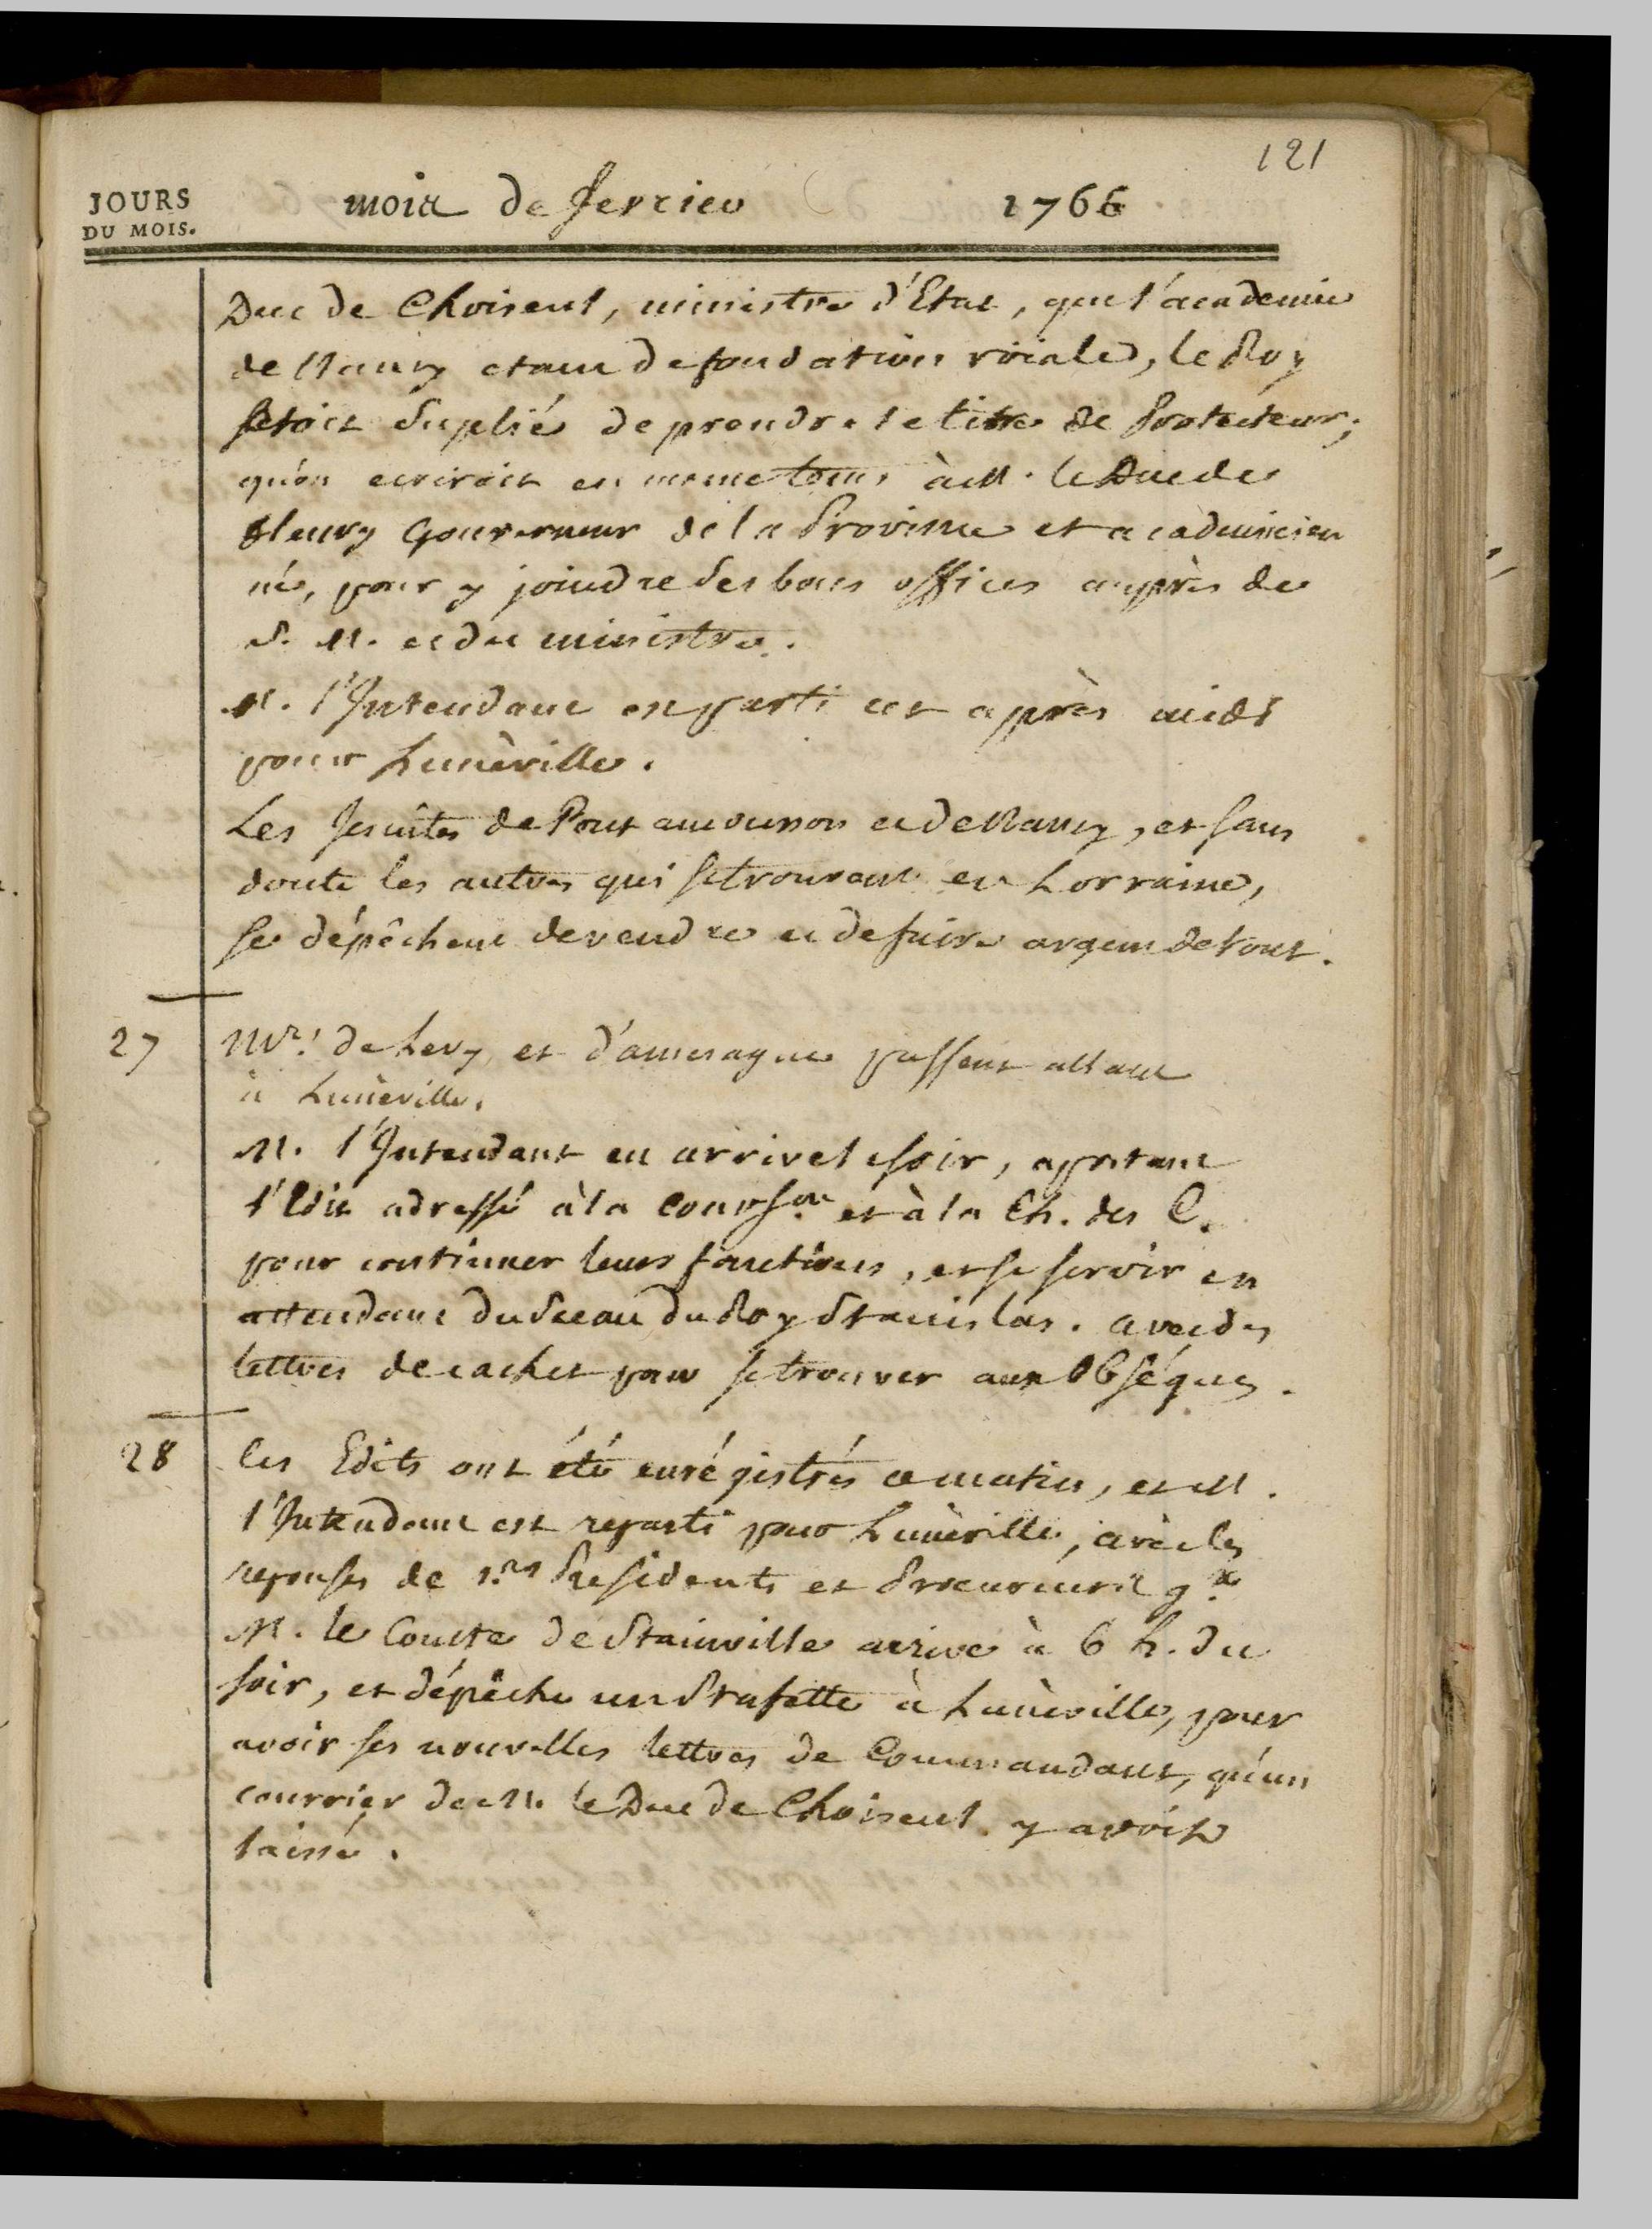 121
JOURS
DU MOIS.
mois de fevrier 1766
Duc de Choiseul, ministre d'Etat, que l'academie
de Nancy etant de fondation roiale, le Roy
seroit suplié de prendre le titre de Protecteur;
qu'on ecriroit en meme tems à M. le Duc de
fleury Gouverneur de la Province et academicien
né, pour y joindre ses bons offices auprès de
S. M. et du ministre.
M. l'Intendant est parti cet après midi
pour Lunèville.
Les Jesuites de Pont amousson et de Nancy, et sans
doute les autres qui se trouvent en Lorraine,
se dépêchent de vendre et de faire argent de tout.
27
Mrs. de Levy et d'amerague passent allant
à Lunèville.
M. l'Intendant en arrive le soir, aportant
l'Edit adressé à la Cour sou.ne et à la Ch. des C.
pour continuer leurs fonctions, et se servir en
attendant du Sceau du Roy Stanislas. avec des
lettres de cachet pour se trouver aux Obséques.
28
les Edits ont été enrégistrés ce matin, et M.
l'Intendant est reparti pour Lunèville, avec les
reponses de 1.rs Presidents et Procureurs g.x
M. le Comte de Stainville arrive à 6 h. du
soir, et dépêche un Stafette à Lunèville, pour
avoir ses nouvelles lettres de Commandant, qu'un
courrier de M. le Duc de Choiseul y avoit
laissé.